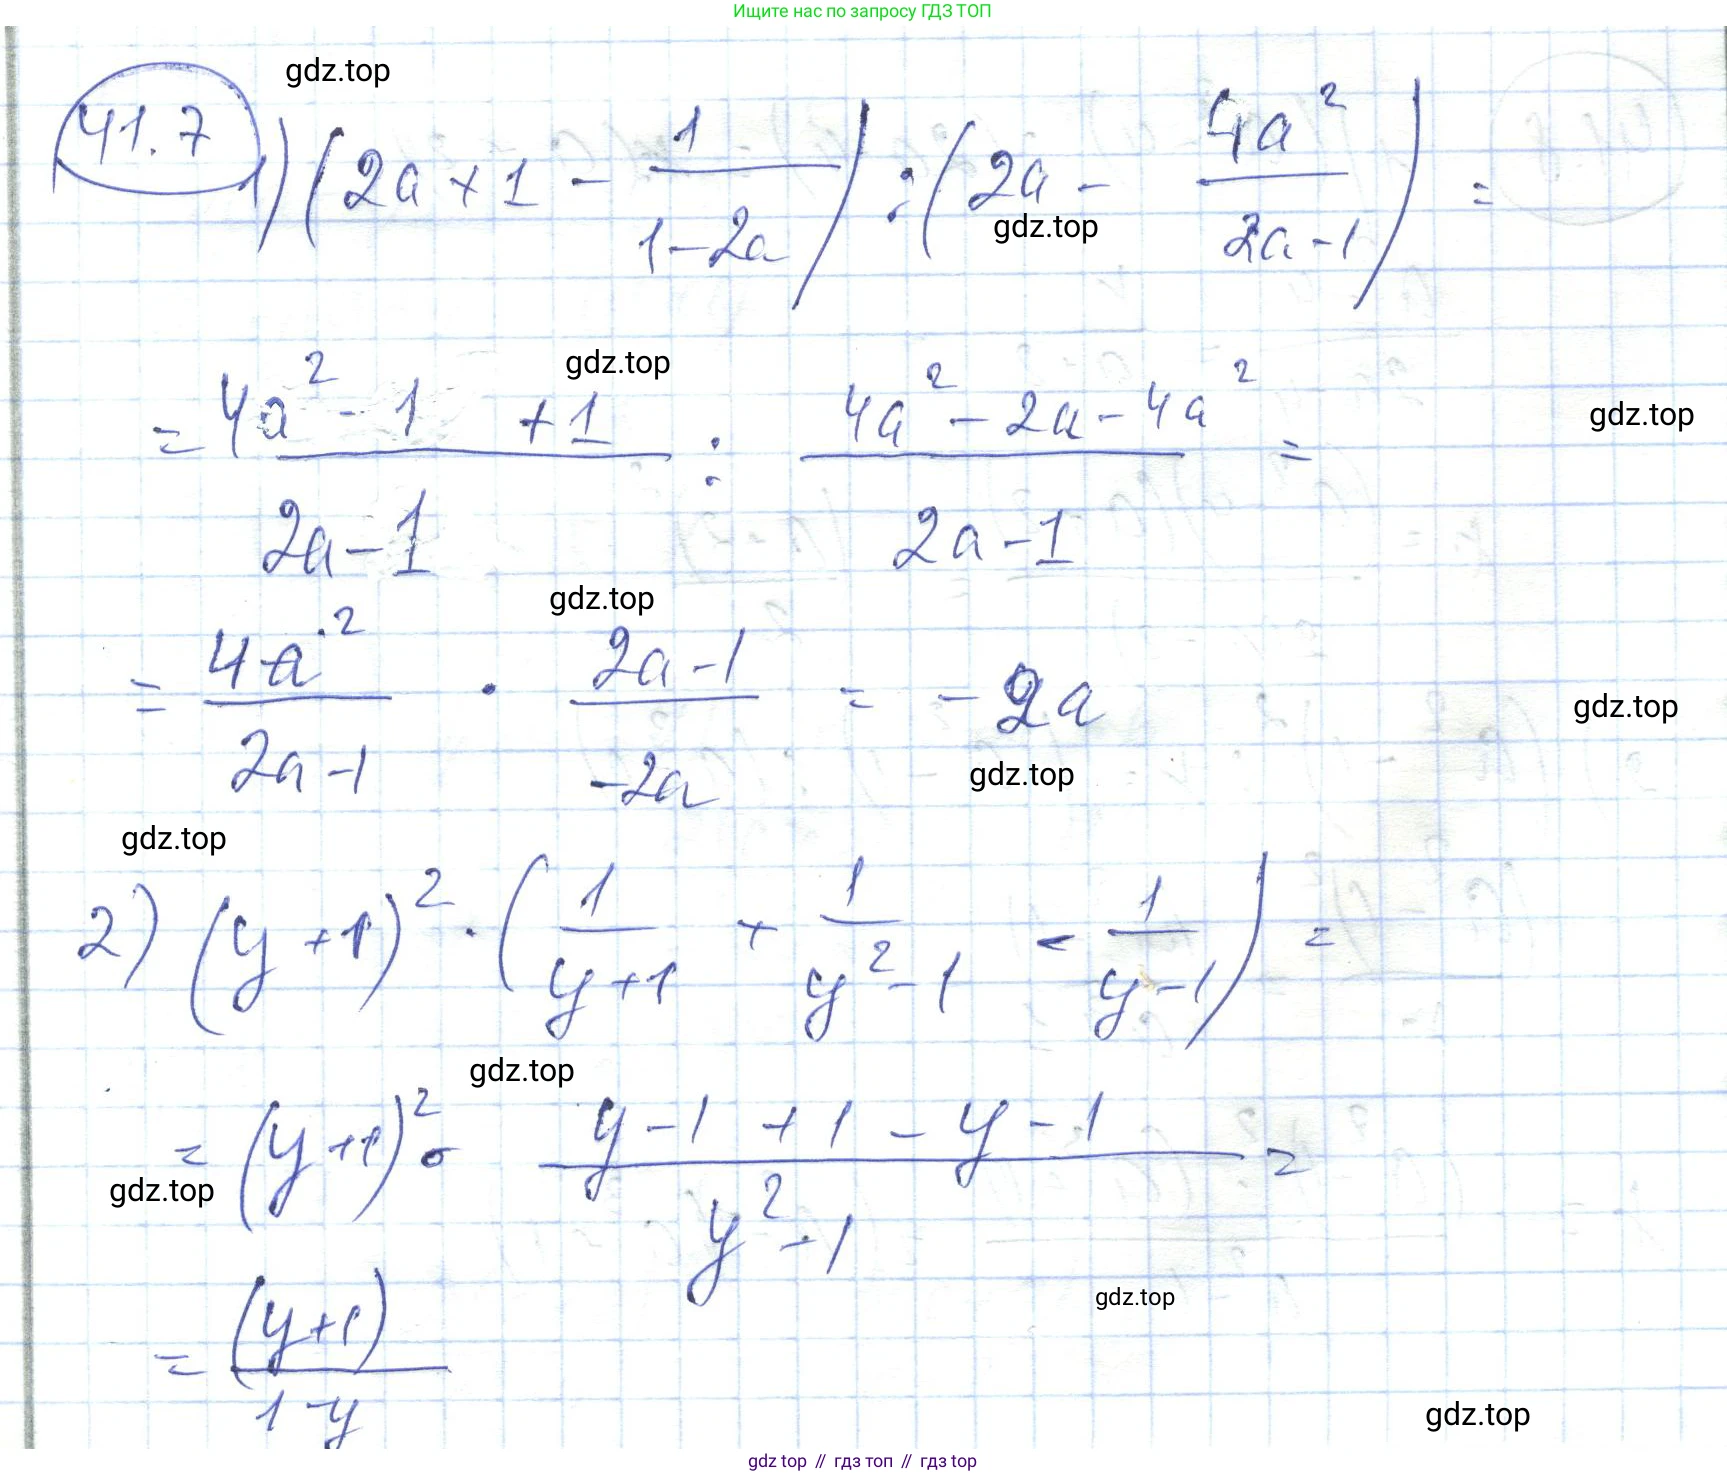 Ищите нас по запросу ГДЗ ТОП
gdz.top
41.7 1) (2a + 1 - 1/(1-2a)) : (2a - 4a²/(2a-1)) =
gdz.top
gdz.top
= (4a² - 1 + 1)/(2a-1) : (4a² - 2a - 4a²)/(2a-1) =
gdz.top
gdz.top
= 4a²/(2a-1) · (2a-1)/(-2a) = -2a
gdz.top
gdz.top
gdz.top
2) (y+1)² · (1/(y+1) + 1/(y²-1) - 1/(y-1)) =
gdz.top
= (y+1)² · (y-1+1-y-1)/(y²-1) =
gdz.top
gdz.top
= (y+1)/(1-y)
gdz.top
gdz.top // гдз топ // гдз top